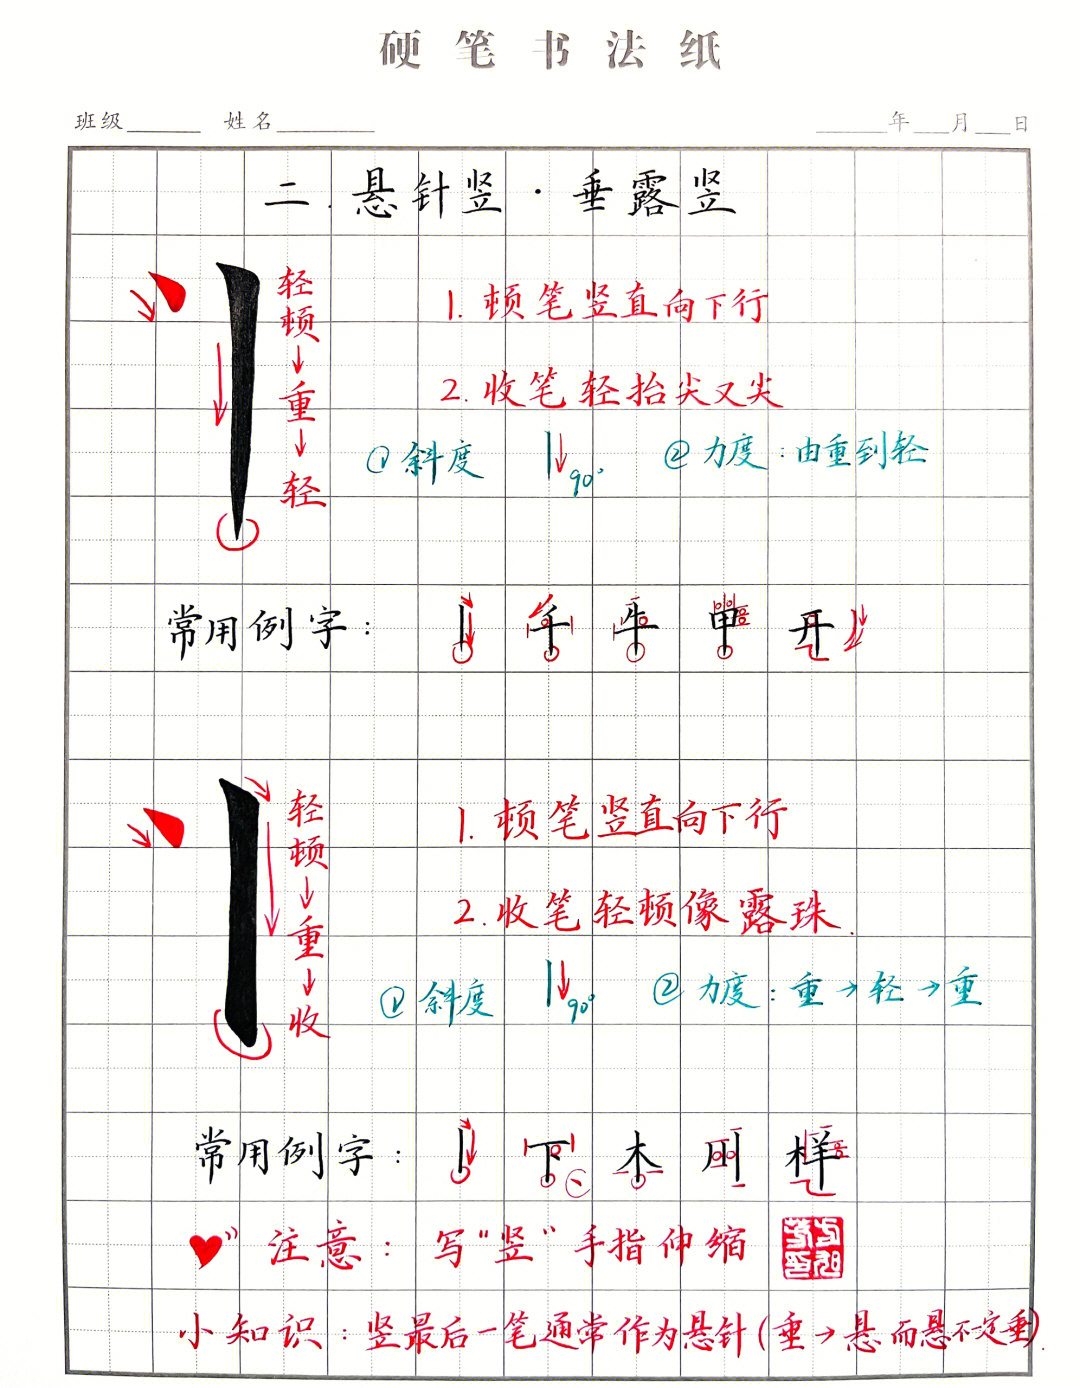 硬笔书法纸
班级 姓名 年 月 日
二.悬针竖·垂露竖
轻顿→重→轻
1.顿笔竖直向下行
2.收笔轻抬尖又尖
①斜度 90° ②力度:由重到轻
常用例字: 丨 千 牛 申 开
轻顿→重→收
1.顿笔竖直向下行
2.收笔轻顿像露珠.
①斜度 90° ②力度:重→轻→重
常用例字: 丨 下 木 用 样
注意: 写"竖"手指伸缩
小知识:竖最后一笔通常作为悬针(垂→悬而悬不定垂).